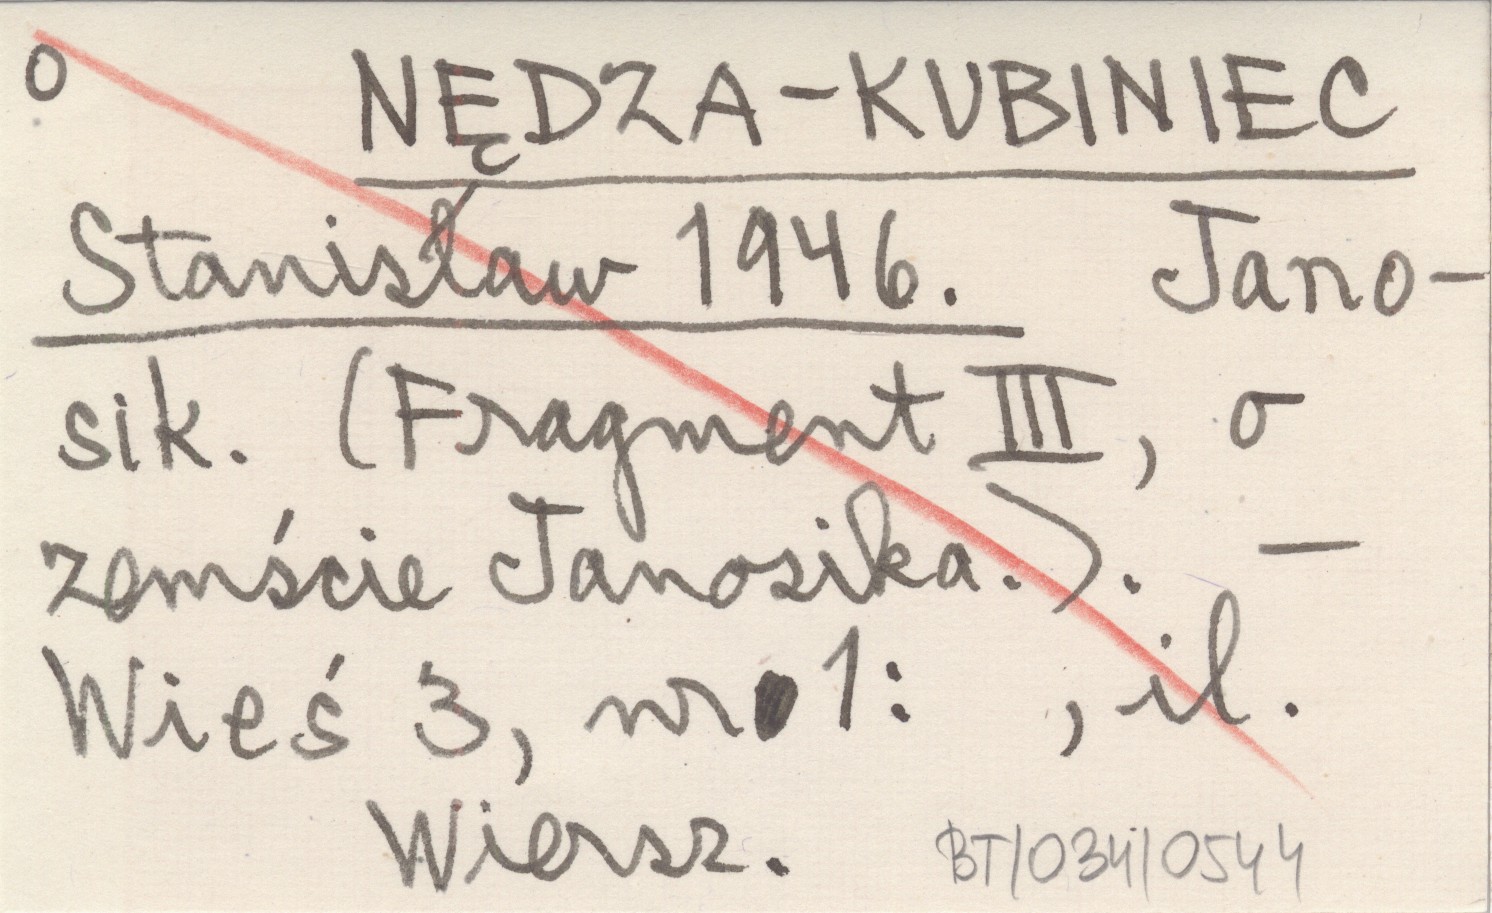 o NĘDZA-KUBINIEC
Stanisław 1946. Jano-
sik. (Fragment III, o
zemście Janosika.). —
Wieś 3, nr 1: , il.
Wiersz.
BT/034/0544